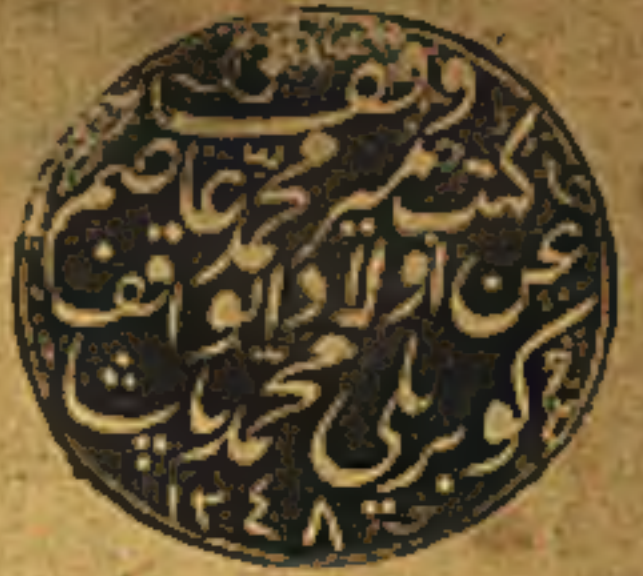 وقف
كتب مير محمد عاصم
عن اولاد الواقف
كوبريلى محمد باشا
١٢٤٨